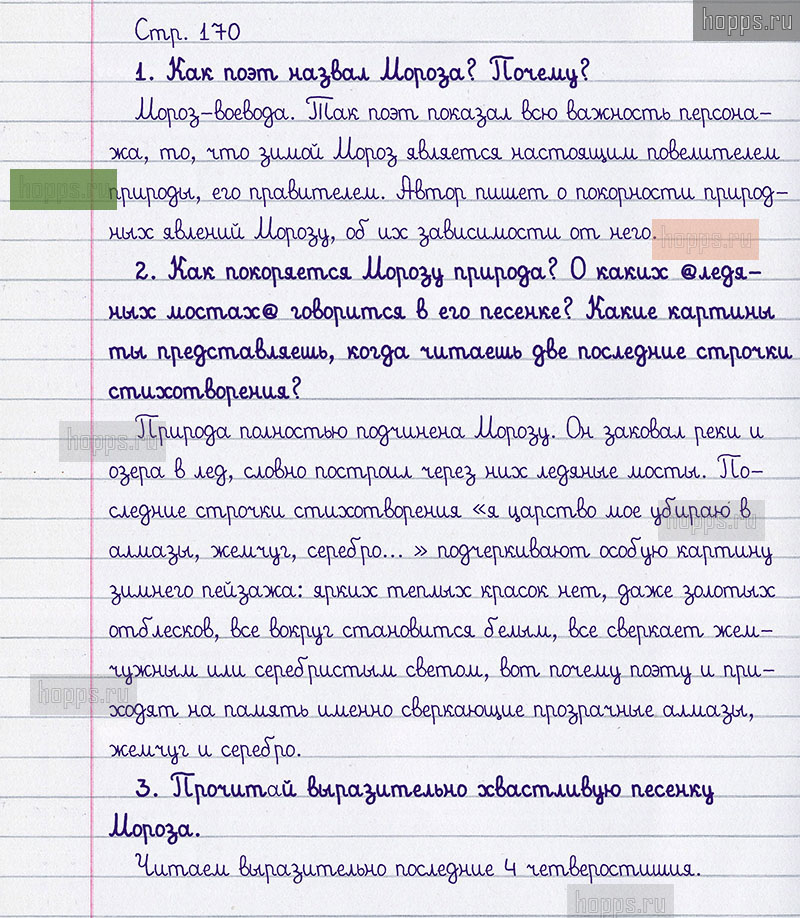 hopps.ru
Стр. 170
1. Как поэт назвал Мороза? Почему?
Мороз-воевода. Так поэт показал всю важность персона-
жа, то, что зимой Мороз является настоящим повелителем
hopps.ru природы, его правителем. Автор пишет о покорности природ-
ных явлений Морозу, об их зависимости от него. hopps.ru
2. Как покоряется Морозу природа? О каких @ледя-
ных мостах@ говорится в его песенке? Какие картины
ты представляешь, когда читаешь две последние строчки
стихотворения?
hopps.ru Природа полностью подчинена Морозу. Он заковал реки и
озера в лед, словно построил через них ледяные мосты. По-
следние строчки стихотворения «я царство мое убираю в
hopps.ru
алмазы, жемчуг, серебро... » подчеркивают особую картину
зимнего пейзажа: ярких теплых красок нет, даже золотых
отблесков, все вокруг становится белым, все сверкает жем-
чужным или серебристым светом, вот почему поэту и при-
hopps.ru
ходят на память именно сверкающие прозрачные алмазы,
жемчуг и серебро.
3. Прочитай выразительно хвастливую песенку
Мороза.
Читаем выразительно последние 4 четверостишия.
hopps.ru